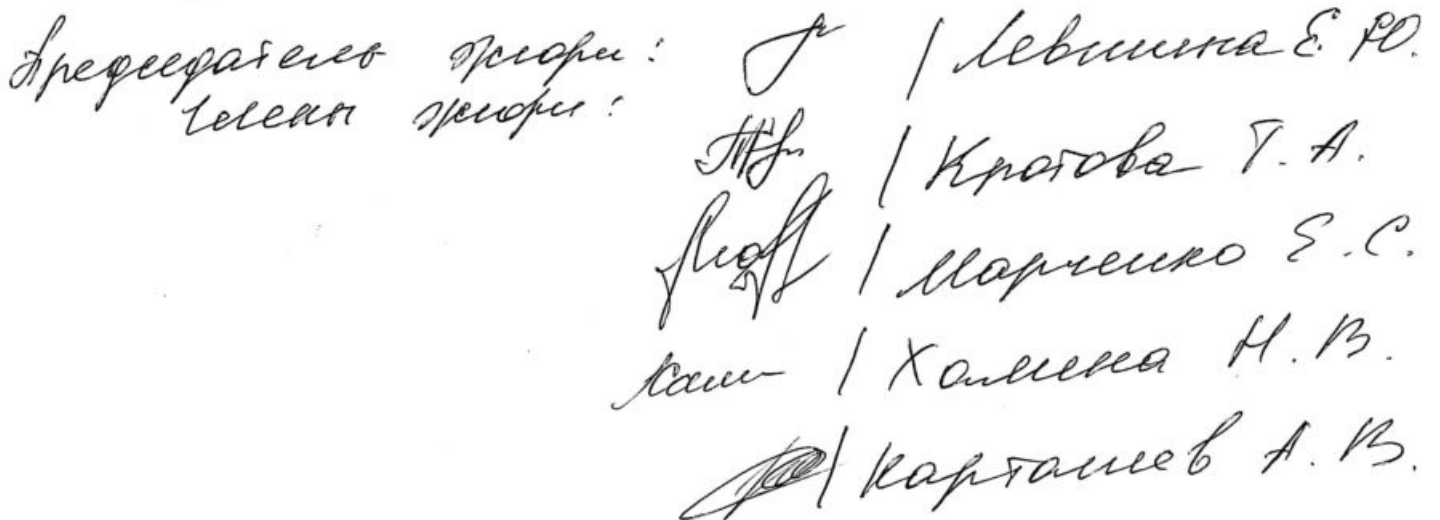 Председатель жюри: / Левшина Е. Ю.
Члены жюри:
/ Кротова Т. А.
/ Марченко Е. С.
/ Хомина Н. В.
/ Карташев А. В.